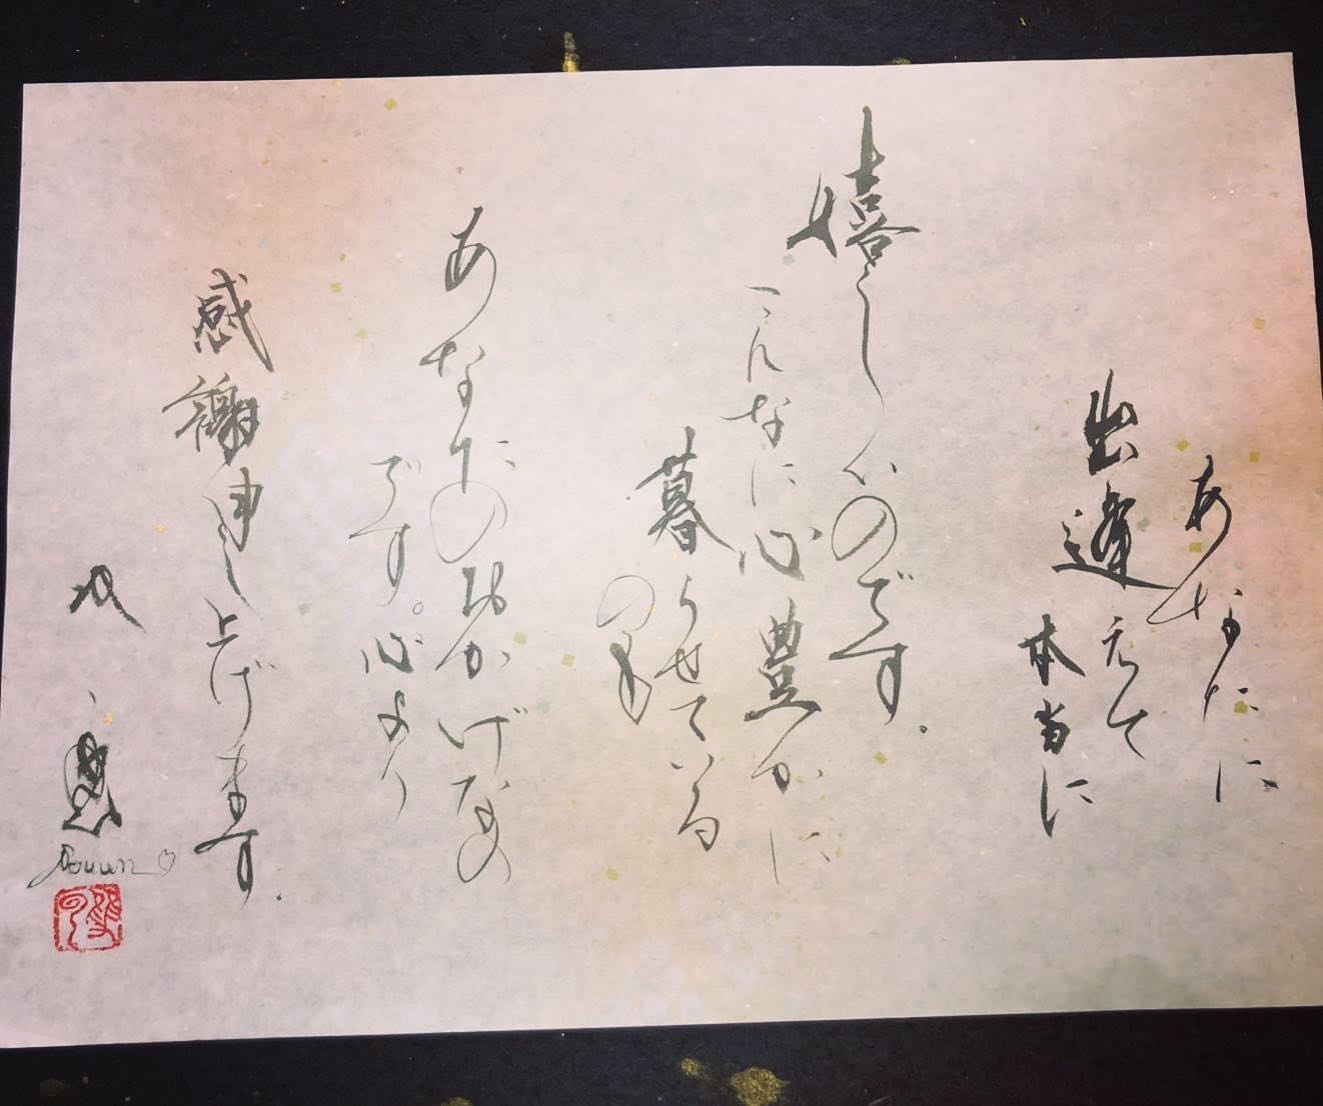 あなたに
出逢えて
本当に
嬉しいのです。
こんなに心豊かに
暮らせている
のは
あなたのおかげなの
です。心より
感謝申し上げます。